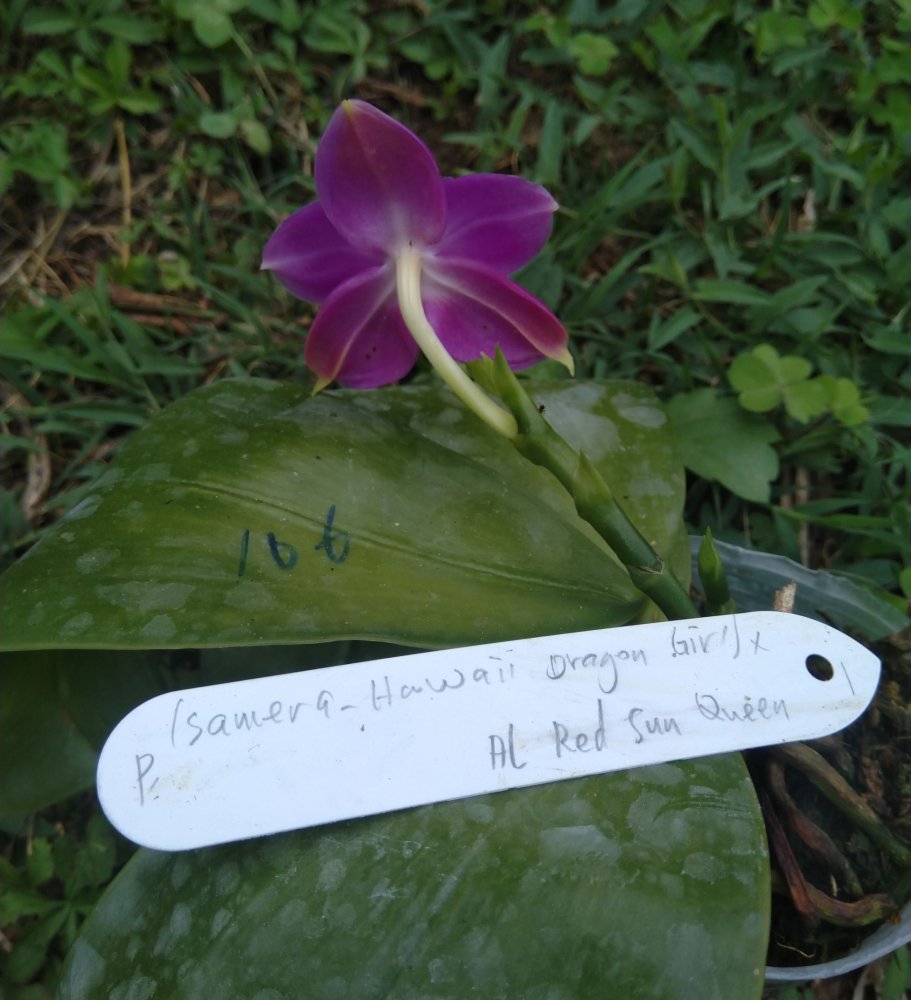 166
P. (samera - Hawaii Dragon Girl) x
AL Red Sun Queen